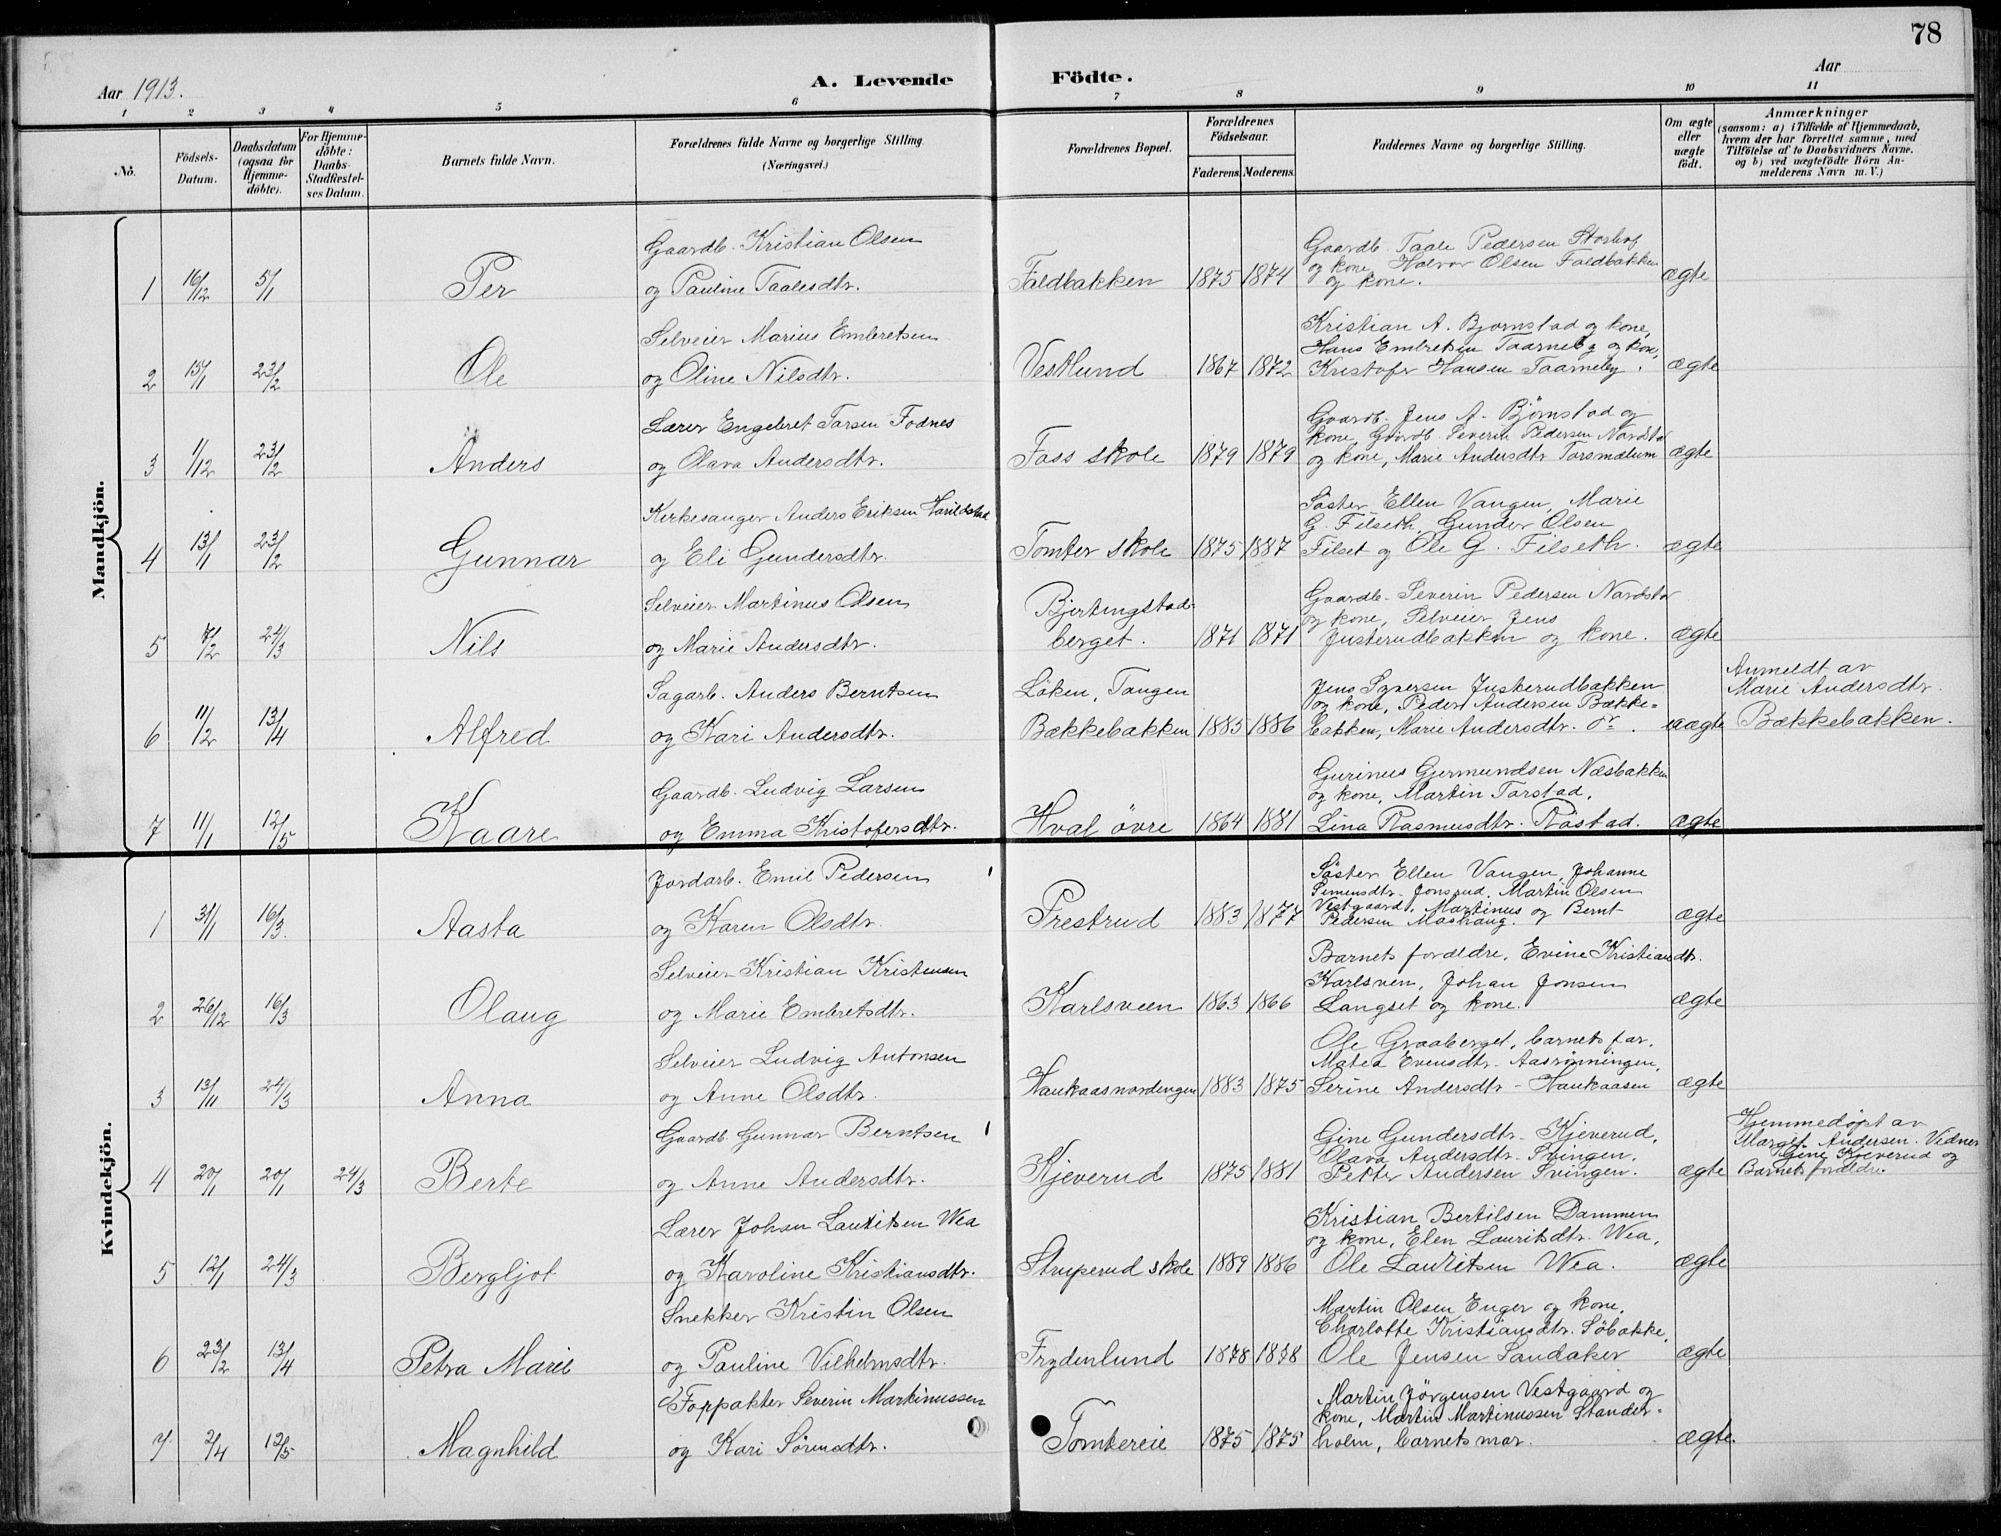 78
Aar 1913.
A. Levende Födte.
Aar
1 2 3 4 5 6 7 8 9 10 11
No.
Födsels-Datum.
Daabsdatum (ogsaa for Hjemme-döbte).
For Hjemme-döbte: Daabs-Stadfæstel-ses Datum.
Barnets fulde Navn.
Forældrenes fulde Navne og borgerlige Stilling.
(Næringsvei.)
Forældrenes Bopæl.
Forældrenes Födselsaar.
Faderens. Moderens.
Faddernes Navne og borgerlige Stilling.
Om ægte eller uægte födt.
Anmærkninger
(saasom: a) i Tilfælde af Hjemmedaab,
hvem der har forrettet samme, med
Tilföielse af to Daabsvidners Navne.
og b) ved uægtefödte Börn An-
melderens Navn m. V.)
Mandkjön.
Gaardb. Kristian Olsen
Gaardb. Taale Pedersen Storhof
og kone, Halvor Olsen Faldbakken
1 16/12 5/1 Per og Pauline Taalesdtr. Faldbakken 1875 1874 og kone. ægte
Selveier Marius Embretsen
Kristian A. Bjørnstad og kone,
Hans Embretsen Taarneby og kone,
2 15/1 23/2 Ole og Oline Nilsdtr. Vestlund 1867 1872 Kristofer Hansen Taarneby. ægte
Lærer Engebret Tarsen Fodnes
Gaardb. Jens A. Bjørnstad og
kone, Gaardb. Severin Pedersen Nardstø
3 1/12 23/2 Anders og Olava Andersdtr. Fass skole 1879 1879 og kone, Marie Andersdtr Torsmælum ægte
Kirkesanger Anders Eriksen Harildstad
Søster Ellen Vangen, Marie
G. Filseth, Gunder Olsen
4 13/1 23/2 Gunnar og Eli Gundersdtr. Tomter skole 1875 1887 Filset og Ole G. Filseth. ægte
Selveier Martinus Olsen
Bjertingstad-
Gaardb. Severin Pedersen Nardstø
og kone, Selveier Jens
5 7/2 24/3 Nils og Marie Andersdtr. berget. 1871 1871 Justerudbakken og kone. ægte
Sagarb. Anders Berntsen
Løken, Tangen
Jens Syversen Justerudbakken
og kone, Peder Andersen Bække-
Anmeldt av
Marie Andersdtr.
6 11/2 13/4 Alfred og Kari Andersdtr. Bækkebakken 1885 1886 bakken, Marie Andersdtr. do. uægte Bækkebakken.
Gaardb. Ludvig Larsen
Gurinus Gjermundsen Næsbakken
og kone, Martin Torstad,
7 11/1 12/5 Kaare og Emma Kristofersdtr. Hval øvre 1864 1881 Lina Rasmusdtr. Råstad. ægte
Kvindekjön.
Jordarb. Emil Pedersen
Søster Ellen Vangen, Johanne
Simensdtr. Jonsrud, Martin Olsen
Vestgaard, Martinus og Bernt
1 31/1 16/3. Aasta og Karen Olsdtr. Prestrud 1883 1877 Pedersen Mashaug. ægte
Selveier Kristian Kristensen
Barnets forældre, Evine Kristiansdtr.
Karlsven, Johan Jonsen
2 26/12 16/3 Olaug og Marie Embretsdtr. Karlsveen 1863 1866 Langset og kone. ægte
Selveier Ludvig Antonsen
Ole Graaberget, barnets far,
Matea Evensdtr. Aasrønningen,
3 13/11 24/3 Anna og Anne Olsdtr. Haukaasnordengen 1883 1875 Serine Andersdtr - Haukaasen ægte
Gaardb. Gunnar Berntsen
Gine Gundersdtr. Kjeverud,
Olava Andersdtr. Svingen,
Hjemmedøpt av
Margit Andersen. Vidner
Gine Kjeverud og
4 20/1 20/1 24/3 Berte og Anne Andersdtr. Kjeverud 1875 1881 Petter Andersen Svingen. ægte Barnets forældre.
Lærer Johan Lauritsen Wea
Kristian Bertilsen Dammen
og kone, Elen Lauritsdtr. Wea,
5 12/1 24/3 Bergljot og Karoline Kristiansdtr. Struperud skole 1889 1886 Ole Lauritsen Wea. ægte
Snekker Kristin Olsen
Martin Olsen Enger og kone,
Charlotte Kristiansdtr. Søbakke,
6 23/2 13/4 Petra Marie og Pauline Vilhelmsdtr. Frydenlund 1878 1878 Ole Jensen Sandaker ægte
Forpakter Severin Martinussen
Martin Jørgensen Vestgaard og
kone, Martin Martinussen Stander-
7 2/4 12/5 Magnhild og Kari Sørensdtr. Tomtereie 1875 1875 holm, barnets mor. ægte.